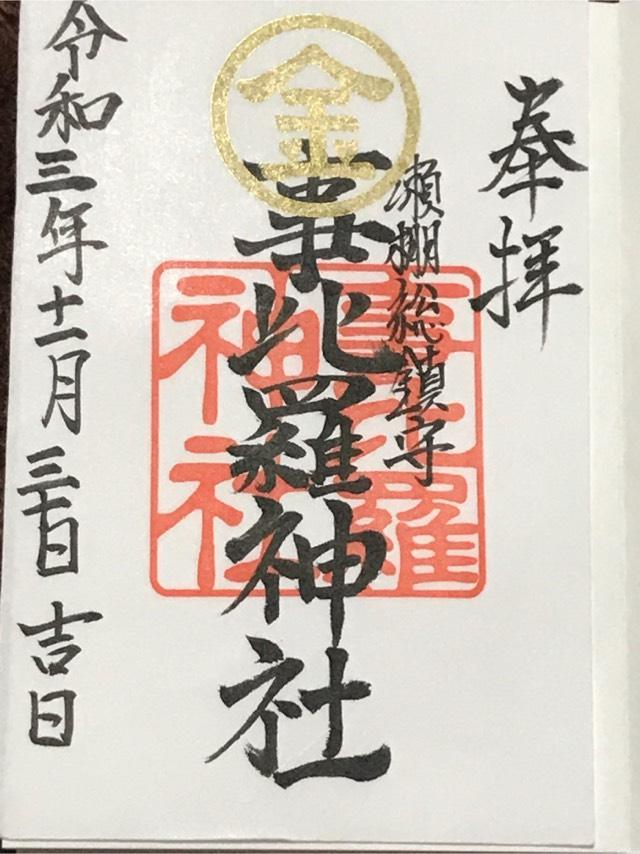 奉拝
瀬棚総鎮守
金
事比羅神社
事比羅
神社
令和三年十一月三十日 吉日